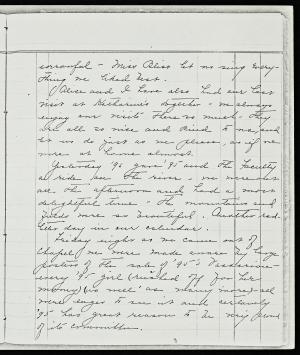 sorrowful - Miss Bliss let us sing every-
thing we liked best.
Alice and I have also had our last
visit at Katharine's together - we always
enjoy our visits there so much - they
are all so nice and kind to us, and
let us do just as we please, as if we
were at home almost.
Yesterday '96 gave '95 and the faculty
a ride on the river - we were out
all the afternoon and had a most
delightful time - the mountains and
fields were so beautiful. Another red-
letter day in our calendar.
Friday night as we came out of
Chapel we were made aware by large
posters of the sale of '95's
every '95 girl ( her
money) (as well as many more) all
were eager to see it and certainly
'95 has great reason to be very proud
of its committee.